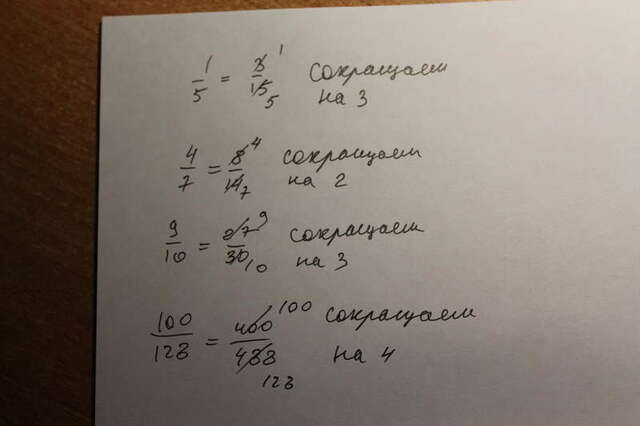 1/5 = 3/15 1/5 сокращаем
на 3
4/7 = 8/14 4/7 сокращаем
на 2
9/10 = 27/30 9/10 сокращаем
на 3
100/128 = 400/488 100/128 сокращаем
на 4